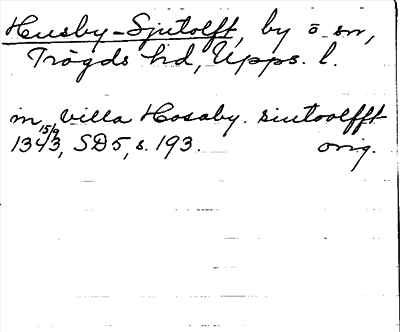 Husby-Sjutolft, by o sn,
Trögds hd, Upps. l.
in villa Hosaby. siutoolfft
1343 15/9, SD5, s. 193. orig.